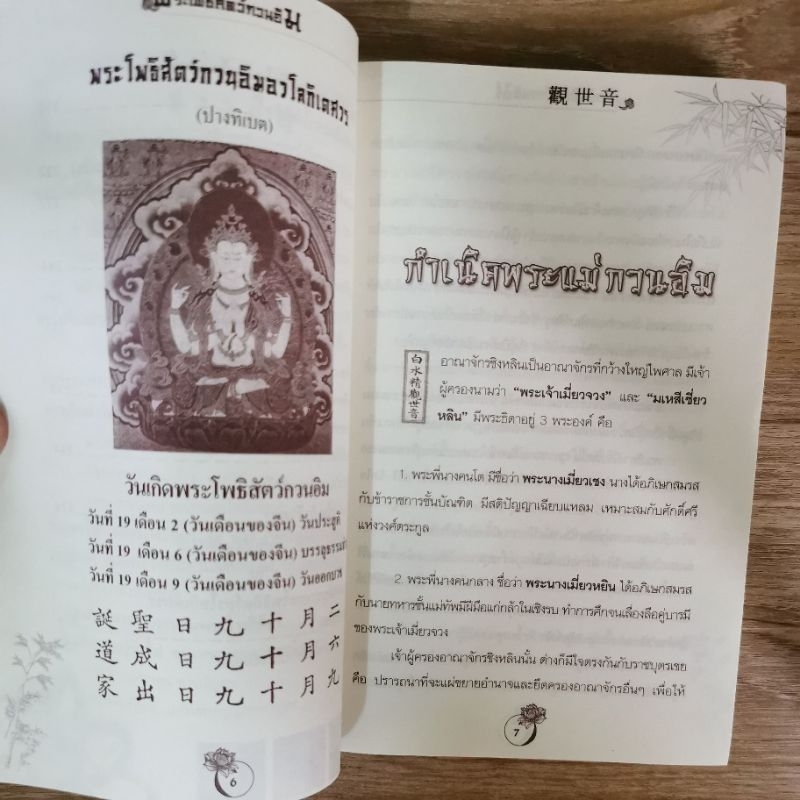 พระโพธิสัตว์กวนอิม
พระโพธิสัตว์กวนอิมอวโลกิเตศวร
(ปางทิเบต)
วันเกิดพระโพธิสัตว์กวนอิม
วันที่ 19 เดือน 2 (วันเดือนของจีน) วันประสูติ
วันที่ 19 เดือน 6 (วันเดือนของจีน) บรรลุธรรม
วันที่ 19 เดือน 9 (วันเดือนของจีน) วันออกบวช
誕聖日九十月二
道成日九十月六
家出日九十月九
6
觀世音
กำเนิดพระแม่กวนอิม
白水精觀世音
อาณาจักรชิงหลินเป็นอาณาจักรที่กว้างใหญ่ไพศาล มีเจ้า
ผู้ครองนามว่า “พระเจ้าเมี่ยวจวง” และ “มเหสีเซี่ยว
หลิน” มีพระธิดาอยู่ 3 พระองค์ คือ
1. พระพี่นางคนโต มีชื่อว่า พระนางเมี่ยวเชง นางได้อภิเษกสมรส
กับข้าราชการชั้นบัณฑิต มีสติปัญญาเฉียบแหลม เหมาะสมกับศักดิ์ศรี
แห่งวงศ์ตระกูล
2. พระพี่นางคนกลาง ชื่อว่า พระนางเมี่ยวหยิน ได้อภิเษกสมรส
กับนายทหารชั้นแม่ทัพมีฝีมือแก่กล้าในเชิงรบ ทำการศึกจนเลื่องลือคู่บารมี
ของพระเจ้าเมี่ยวจวง
เจ้าผู้ครองอาณาจักรชิงหลินนั้น ต่างก็มีใจตรงกันกับราชบุตรเขย
คือ ปรารถนาที่จะแผ่ขยายอำนาจและยึดครองอาณาจักรอื่นๆ เพื่อให้
7